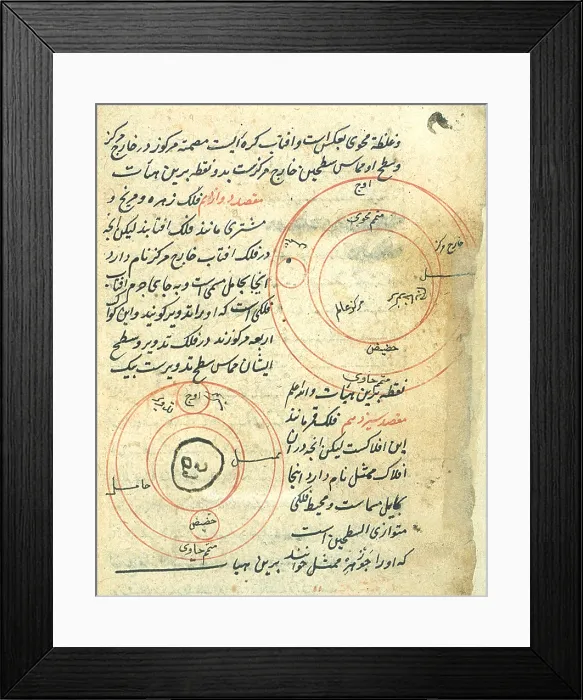 و غلظهٔ محوی بعکس است و افتاب کره ایست مصمته مرکوز در خارج مرکز
و سطح او مماس سطحین خارج مرکزست بدو نقطه برین هیأت
مقصد دوازدهم فلک زهره و مریخ و
مشتری مانند فلک افتابند لیکن انچه
در فلک افتاب خارج مرکز نام دارد
انجا بحامل مسمی است و به جای جرم افتاب
فلکی است که او را تدویر کویند و این کواکب
اربعه مرکوزند در فلک تدویر و سطح
ایشان مماس سطح تدویرست بیک
اوج
متمم محوی
خارج مرکز
مرکز عالم
حضیض
متمم حاوی
نقطه برین هیأت والله اعلم
مقصد سیزدهم فلک قمر مانند
این افلاکست لیکن انچه در ان
افلاک ممثل نام دارد انجا
بمایل مسماست و محیط فلکی
متوازی السطحین است
که او را جوزهر و ممثل خوانند برین هیأت
تدویر
اوج
ممثل
حامل
حضیض
متمم حاوی